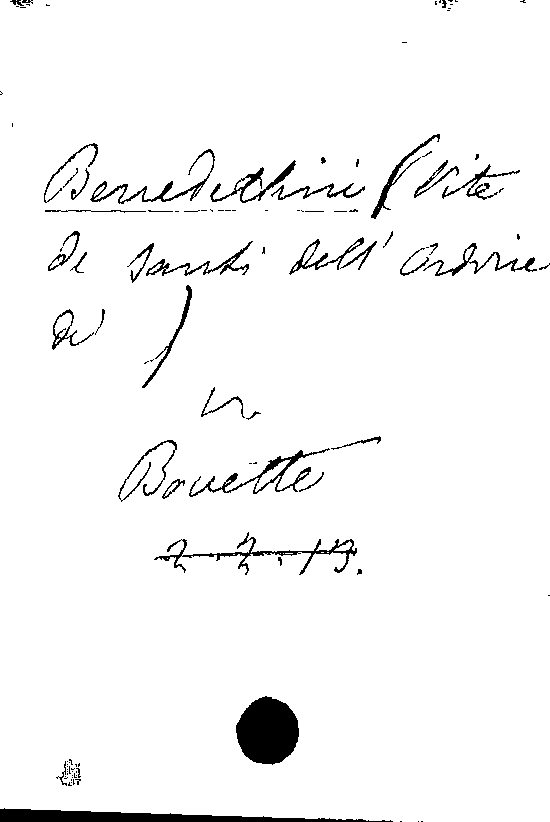 Benedettini (Vite
de Santi dell' Ordine
di )
v.
Bouette
2.2.13.